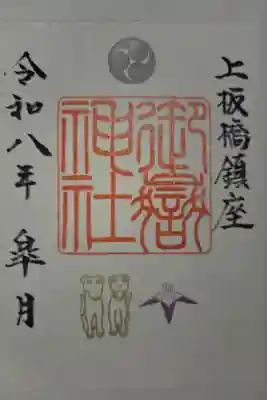 上板橋鎮座
御嶽神社
令和八年 皐月